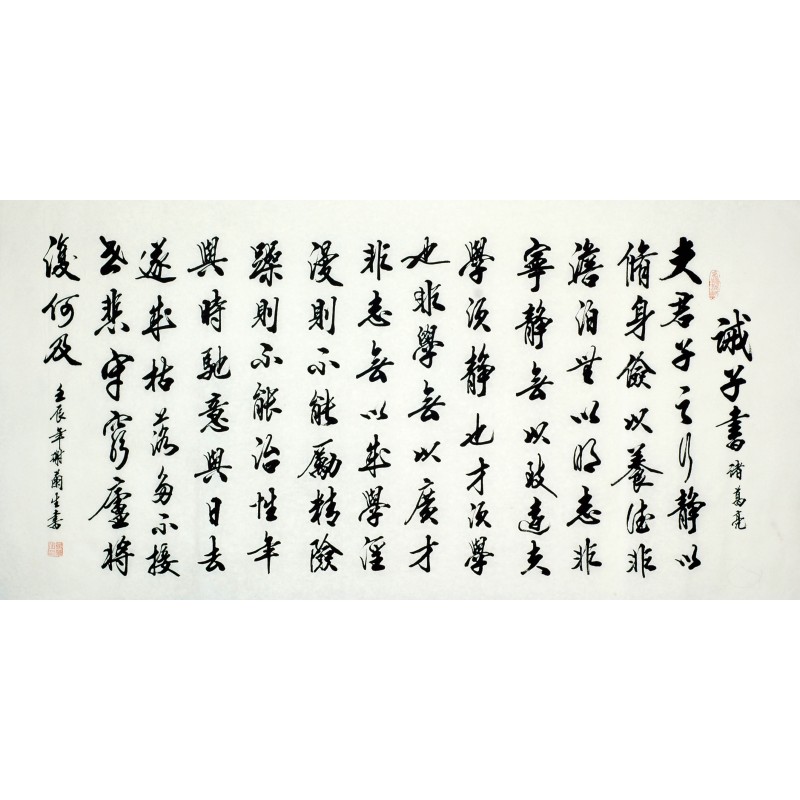 誡子書 諸葛亮
夫君子之行静以
脩身儉以養德非
澹泊無以明志非
寧静無以致遠夫
學須静也才須學
也非學無以廣才
非志無以成學淫
漫則不能勵精險
躁則不能治性年
與時馳意與日去
遂成枯落多不接
世悲守窮廬將
復何及
壬辰年生書